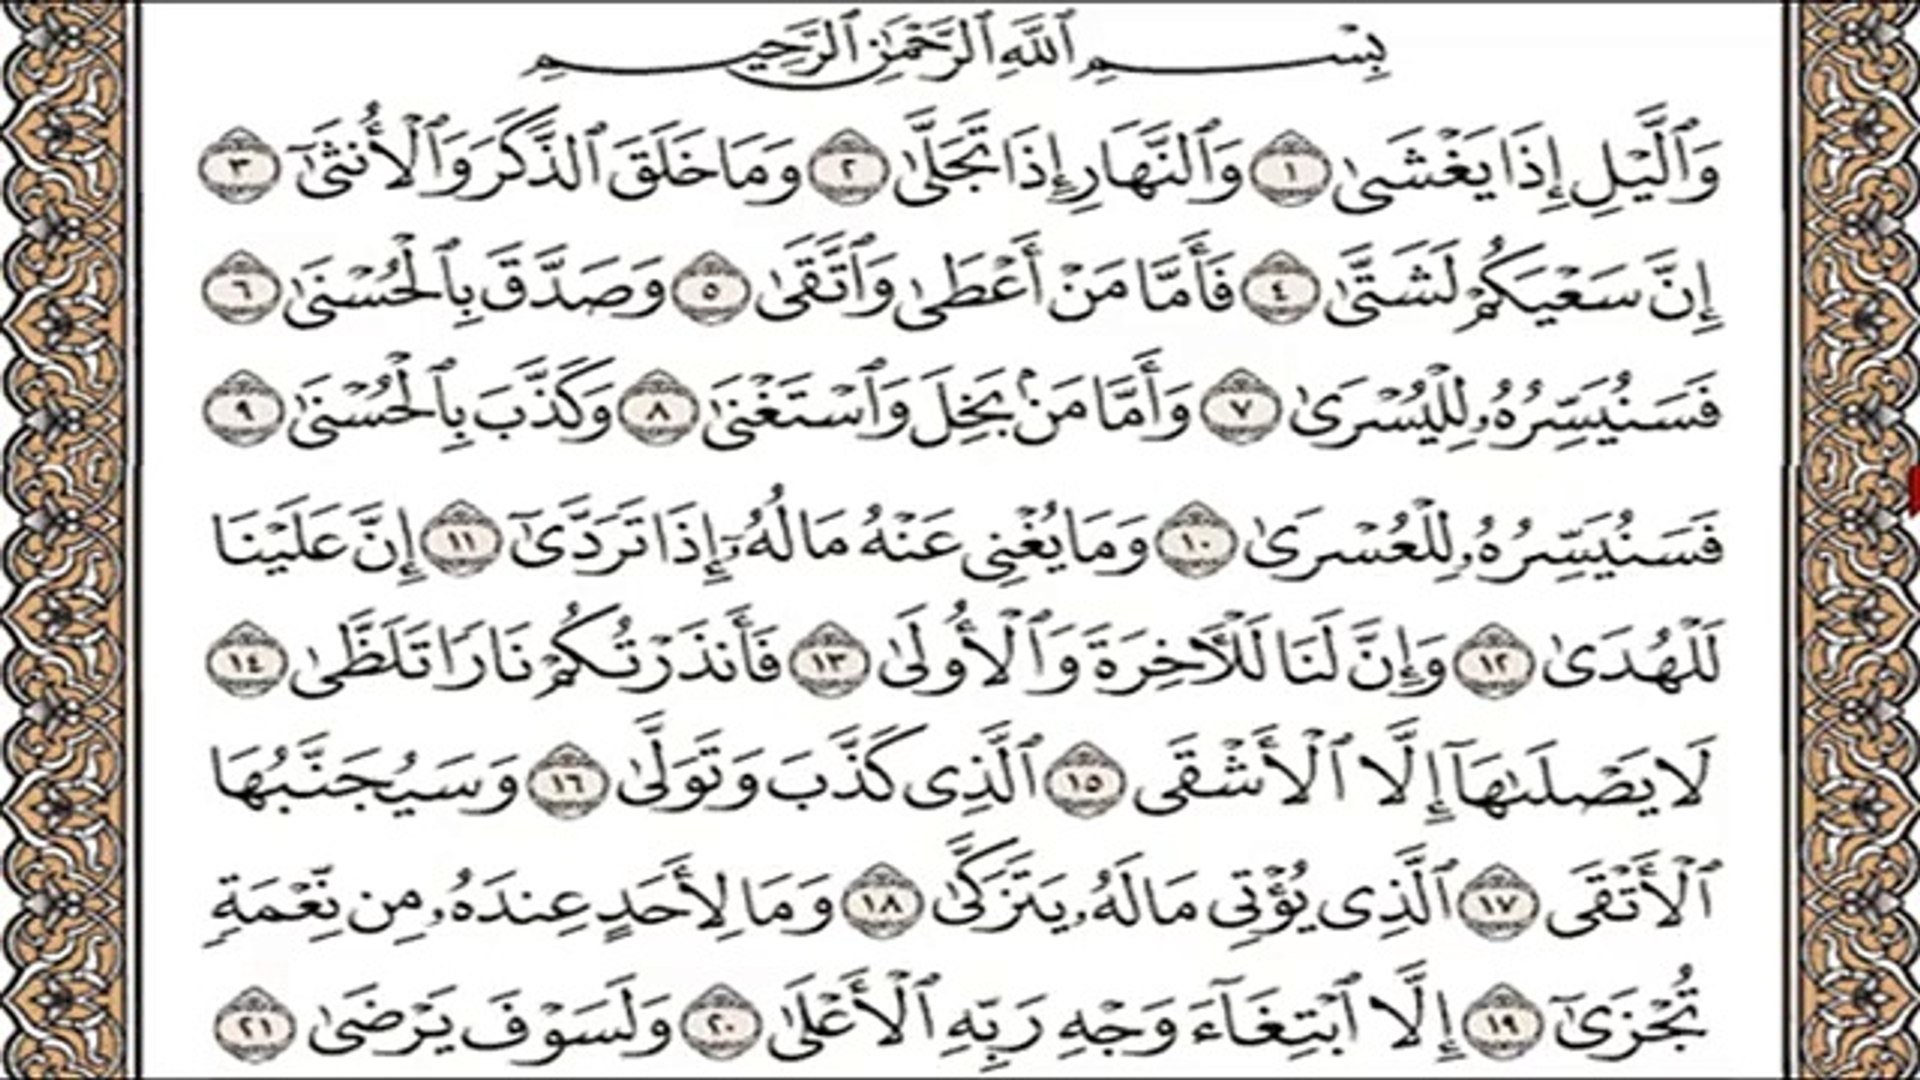 بِسْمِ ٱللَّهِ ٱلرَّحْمَٰنِ ٱلرَّحِيمِ
وَٱلَّيْلِ إِذَا يَغْشَىٰ ١ وَٱلنَّهَارِ إِذَا تَجَلَّىٰ ٢ وَمَا خَلَقَ ٱلذَّكَرَ وَٱلْأُنثَىٰٓ ٣
إِنَّ سَعْيَكُمْ لَشَتَّىٰ ٤ فَأَمَّا مَنْ أَعْطَىٰ وَٱتَّقَىٰ ٥ وَصَدَّقَ بِٱلْحُسْنَىٰ ٦
فَسَنُيَسِّرُهُۥ لِلْيُسْرَىٰ ٧ وَأَمَّا مَنۢ بَخِلَ وَٱسْتَغْنَىٰ ٨ وَكَذَّبَ بِٱلْحُسْنَىٰ ٩
فَسَنُيَسِّرُهُۥ لِلْعُسْرَىٰ ١٠ وَمَا يُغْنِى عَنْهُ مَالُهُۥٓ إِذَا تَرَدَّىٰٓ ١١ إِنَّ عَلَيْنَا
لَلْهُدَىٰ ١٢ وَإِنَّ لَنَا لَلْـَٔاخِرَةَ وَٱلْأُولَىٰ ١٣ فَأَنذَرْتُكُمْ نَارًا تَلَظَّىٰ ١٤
لَا يَصْلَىٰهَآ إِلَّا ٱلْأَشْقَى ١٥ ٱلَّذِى كَذَّبَ وَتَوَلَّىٰ ١٦ وَسَيُجَنَّبُهَا
ٱلْأَتْقَى ١٧ ٱلَّذِى يُؤْتِى مَالَهُۥ يَتَزَكَّىٰ ١٨ وَمَا لِأَحَدٍ عِندَهُۥ مِن نِّعْمَةٍ
تُجْزَىٰٓ ١٩ إِلَّا ٱبْتِغَآءَ وَجْهِ رَبِّهِ ٱلْأَعْلَىٰ ٢٠ وَلَسَوْفَ يَرْضَىٰ ٢١